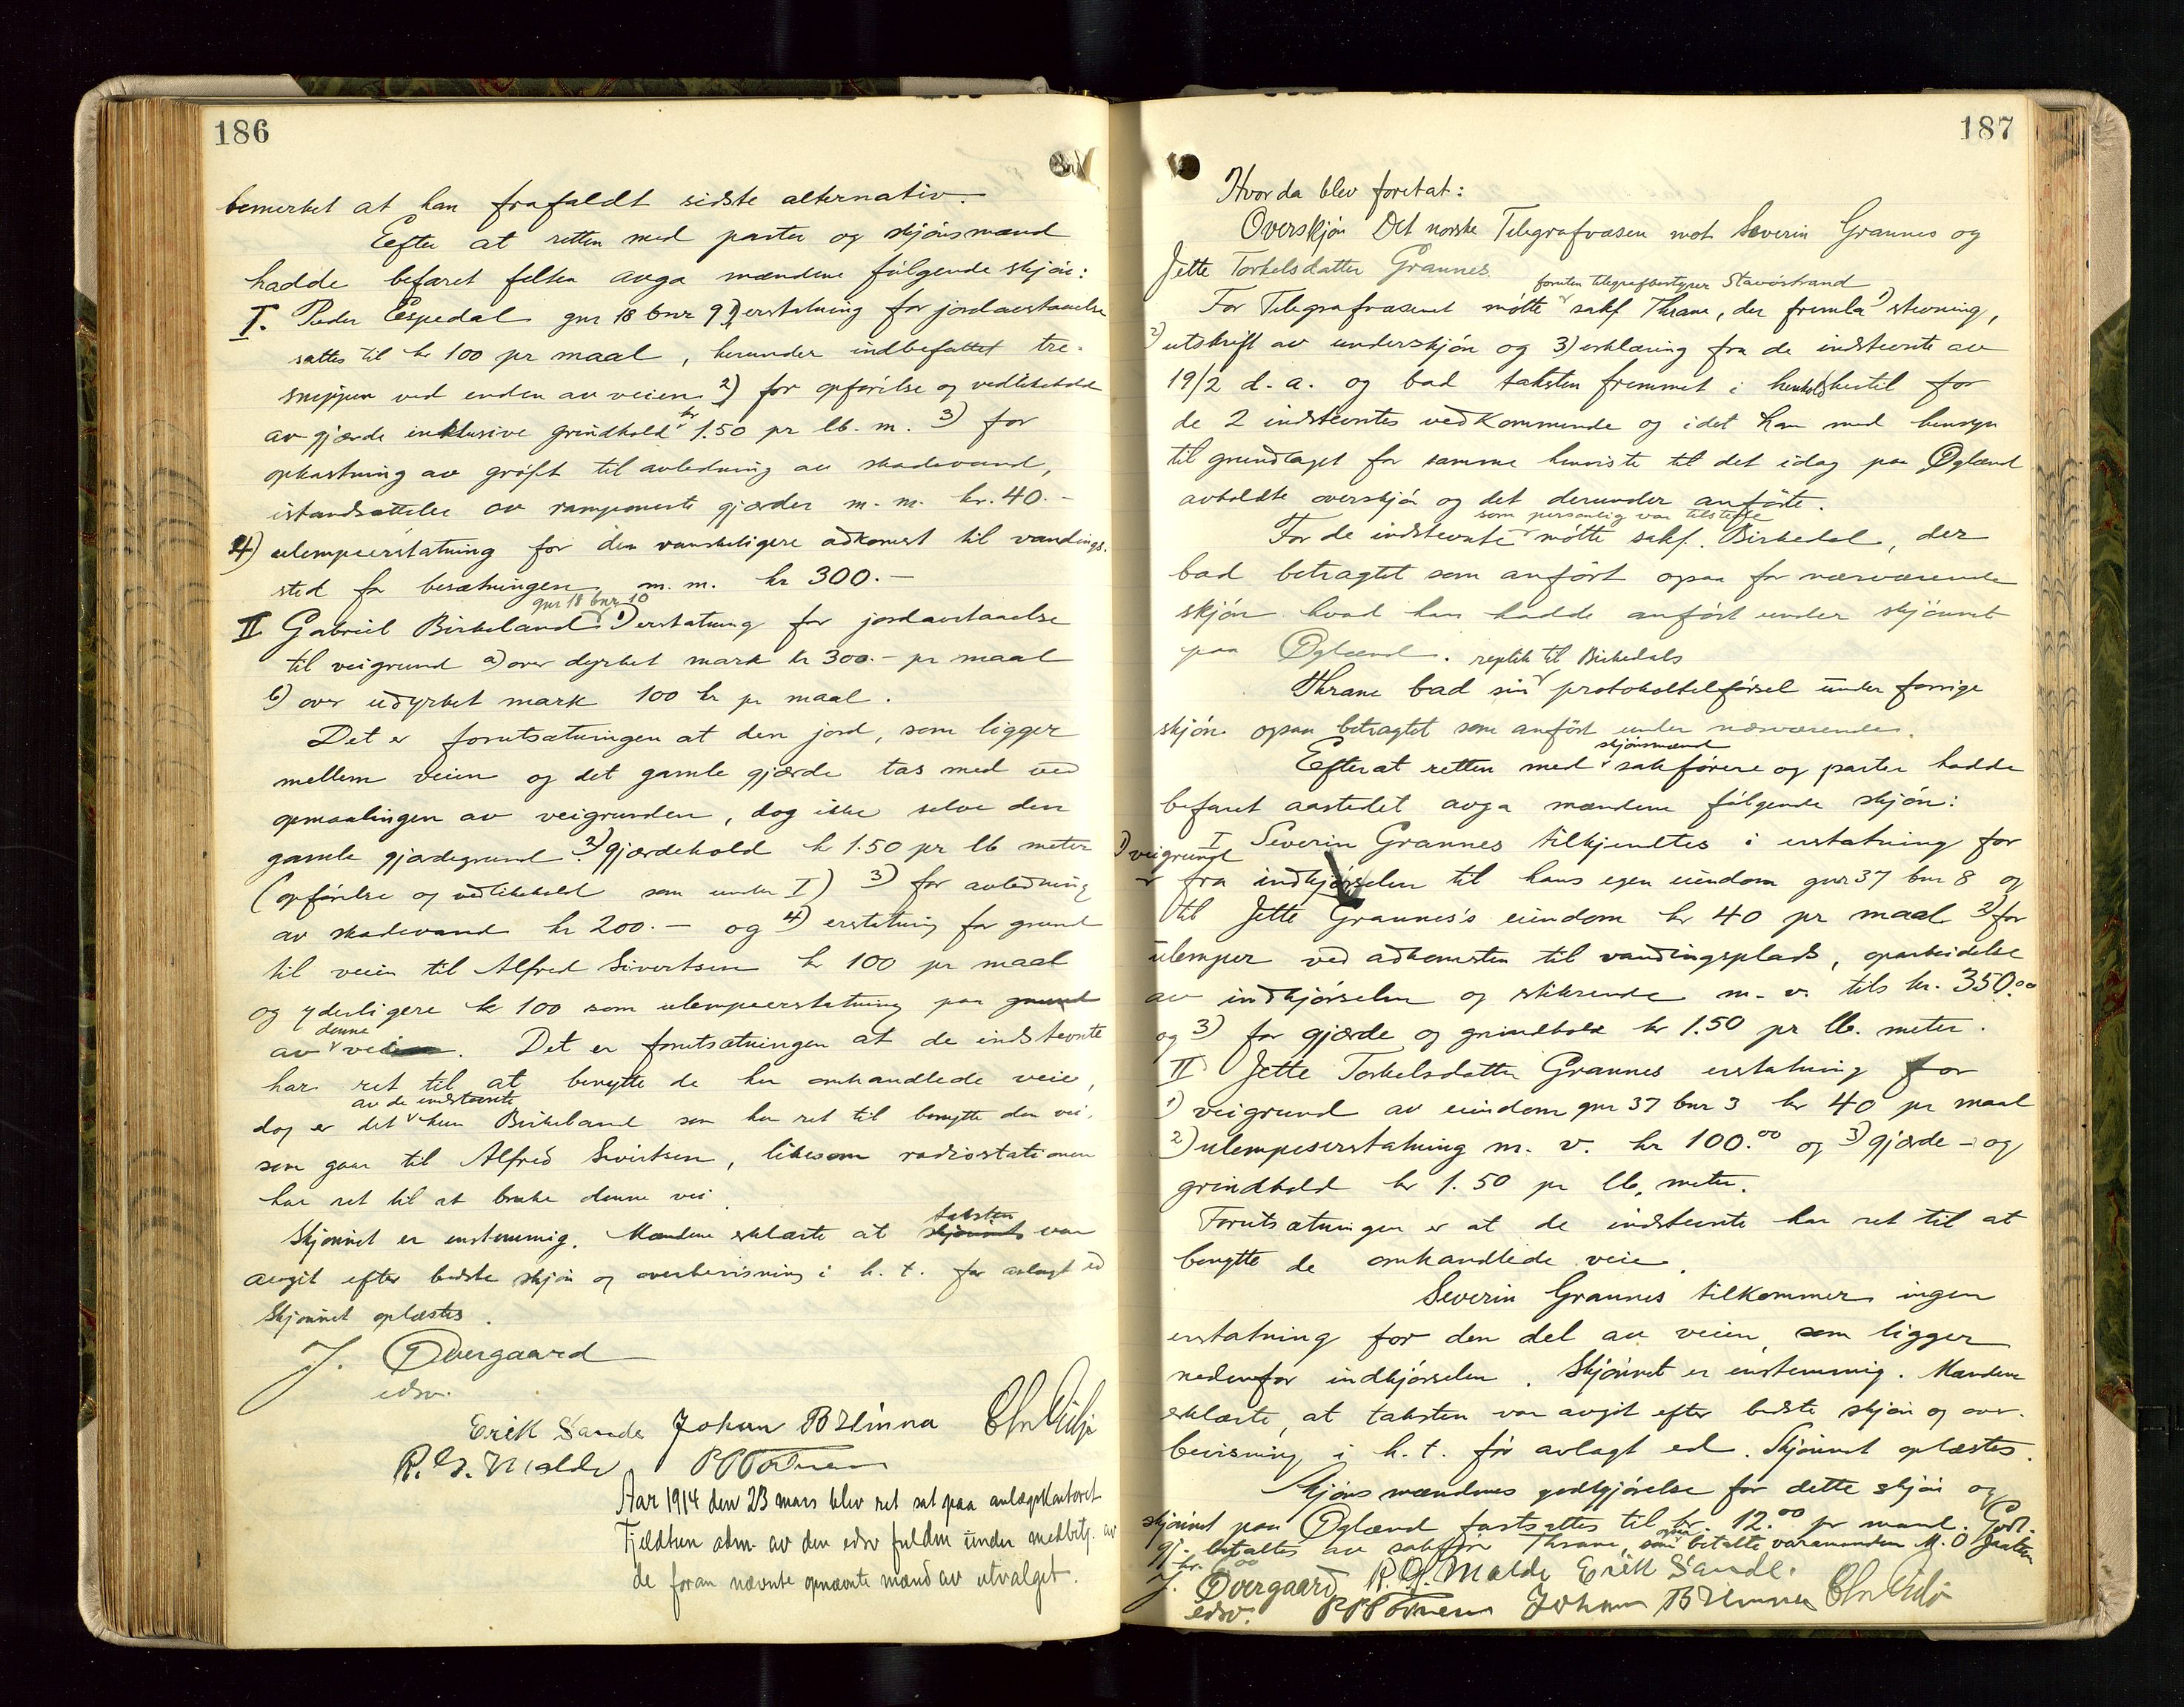 186
bemerket at han frafaldt sidste alternativ.
Efter at retten med parter og skjønsmænd
hadde befaret felten avga mændene følgende skjøn:
I. Peder Espedal gnr 18 bnr 9 1) erstatning for jordavstaaelse
sættes til kr 100 pr maal, herunder indbefattet tre-
snippen ved enden av veien 2) for opførelse og vedlikehold
av gjærde inklusive grindhold kr 1.50 pr lb. m. 3) for
opkastning av grøft til avledning av skadevand,
istandsættelse av ramponerte gjærder m. m. kr. 40.-
4) ulempeerstatning for den vanskeligere adkomst til vandings-
sted for besætningen m. m. kr 300.-
gnr 18 bnr 10
II Gabriel Birkeland 1) erstatning for jordavstaaelse
til veigrund a) over dyrket mark kr 300.- pr maal
b) over udyrket mark 100 kr pr maal.
Det er forutsætningen at den jord, som ligger
mellem veien og det gamle gjærde tas med ved
opmaalingen av veigrunden, dog ikke selve den
gamle gjærdegrund. 2) gjærdehold kr 1.50 pr lb meter
(opførelse og vedlikehold som under I) 3) for avledning
av skadevand kr 200.- og 4) erstatning for grund
til veien til Alfred Sivertsen kr 100 pr maal
og yderligere kr 100 som ulempeerstatning paa grund
av denne vei. Det er forutsætningen at de indstevnte
har ret til at benytte de her omhandlede veie,
av de indstevnte
dog er det kun Birkeland som har ret til benytte den vei,
som gaar til Alfred Sivertsen, likesom radiostationen
har ret til at bruke denne vei.
taksten
Skjønnet er enstemmig. Mændene erklærte at skjønnet var
avgit efter bedste skjøn og overbevisning i h. t. før avlagt ed
Skjønnet oplæstes.
J. Øvergaard
edsv.
Erik Sande Johan B Hinna
R. G. Malde
Aar 1914 den 23 mars blev ret sat paa anlægskontoret
Fjeldtun adm. av den edsv fuldm under medbetj. av
de foran nævnte opnævnte mænd av utvalget.
187
Hvor da blev foretat:
Overskjøn Det norske Telegrafvæsen mot Severin Grannes og
Jette Torkelsdatter Grannes.
foruten telegrafbestyrer Stavøstrand
For Telegrafvæsenet møtte sakf Thrane, der fremla 1) stevning,
2) utskrift av underskjøn og 3) erklæring fra de indstevnte av
19/2 d. a. og bad taksten fremmet i henhold hertil for
de 2 indstevntes vedkommende og idet han med hensyn
til grundlaget for samme henviste til det idag paa Øglænd
avholdte overskjøn og det derunder anførte.
som personlig var tilstede
For de indstevnte møtte sakf. Birkedal, der
bad betragtet som anført ogsaa for nærværende
skjøn hvad han hadde anført under skjønnet
paa Øglænd.
replik til Birkedals
Thrane bad sin protokoltilførsel under forrige
skjøn ogsaa betragtet som anført under nærværende.
skjønsmænd
Efterat retten med sakførere og parter hadde
befaret aastedet avga mændene følgende skjøn:
I Severin Grannes tilkjendtes i erstatning for
1) veigrund
fra indkjørselen til hans egen eiendom gnr 37 bnr 8 og
til Jette Grannes's eiendom kr 40 pr maal 2) for
ulemper ved adkomsten til vandingsplads, oparbeidelse
av indkjørselen og stikrende m. v. tils kr. 350.00
og 3) for gjærde og grindhold kr 1.50 pr lb. meter.
II Jette Torkelsdatter Grannes erstatning for
1) veigrund av eiendom gnr 37 bnr 3 kr 40 pr maal
2) ulempeserstatning m. v. kr 100.00 og 3) gjærde- og
grindhold kr 1.50 pr lb. meter.
Forutsætningen er at de indstevnte har ret til at
benytte de omhandlede veie.
Severin Grannes tilkommer ingen
erstatning for den del av veien som ligger
nedenfor indkjørselen. Skjønnet er enstemmig. Mændene
erklærte, at taksten var avgit efter bedste skjøn og over-
bevisning i h. t. før avlagt ed. Skjønnet oplæstes.
Skjønsmændenes godtgjørelse for dette skjøn og
skjønnet paa Øglænd fastsættes til kr. 12.00 pr mand. Godt-
gj. betaltes av sakfører Thrane, som ogsaa betalte varamanden M. O
J. Øvergaard R. G. Malde Erik Sande.
edsv. Johan B Hinna